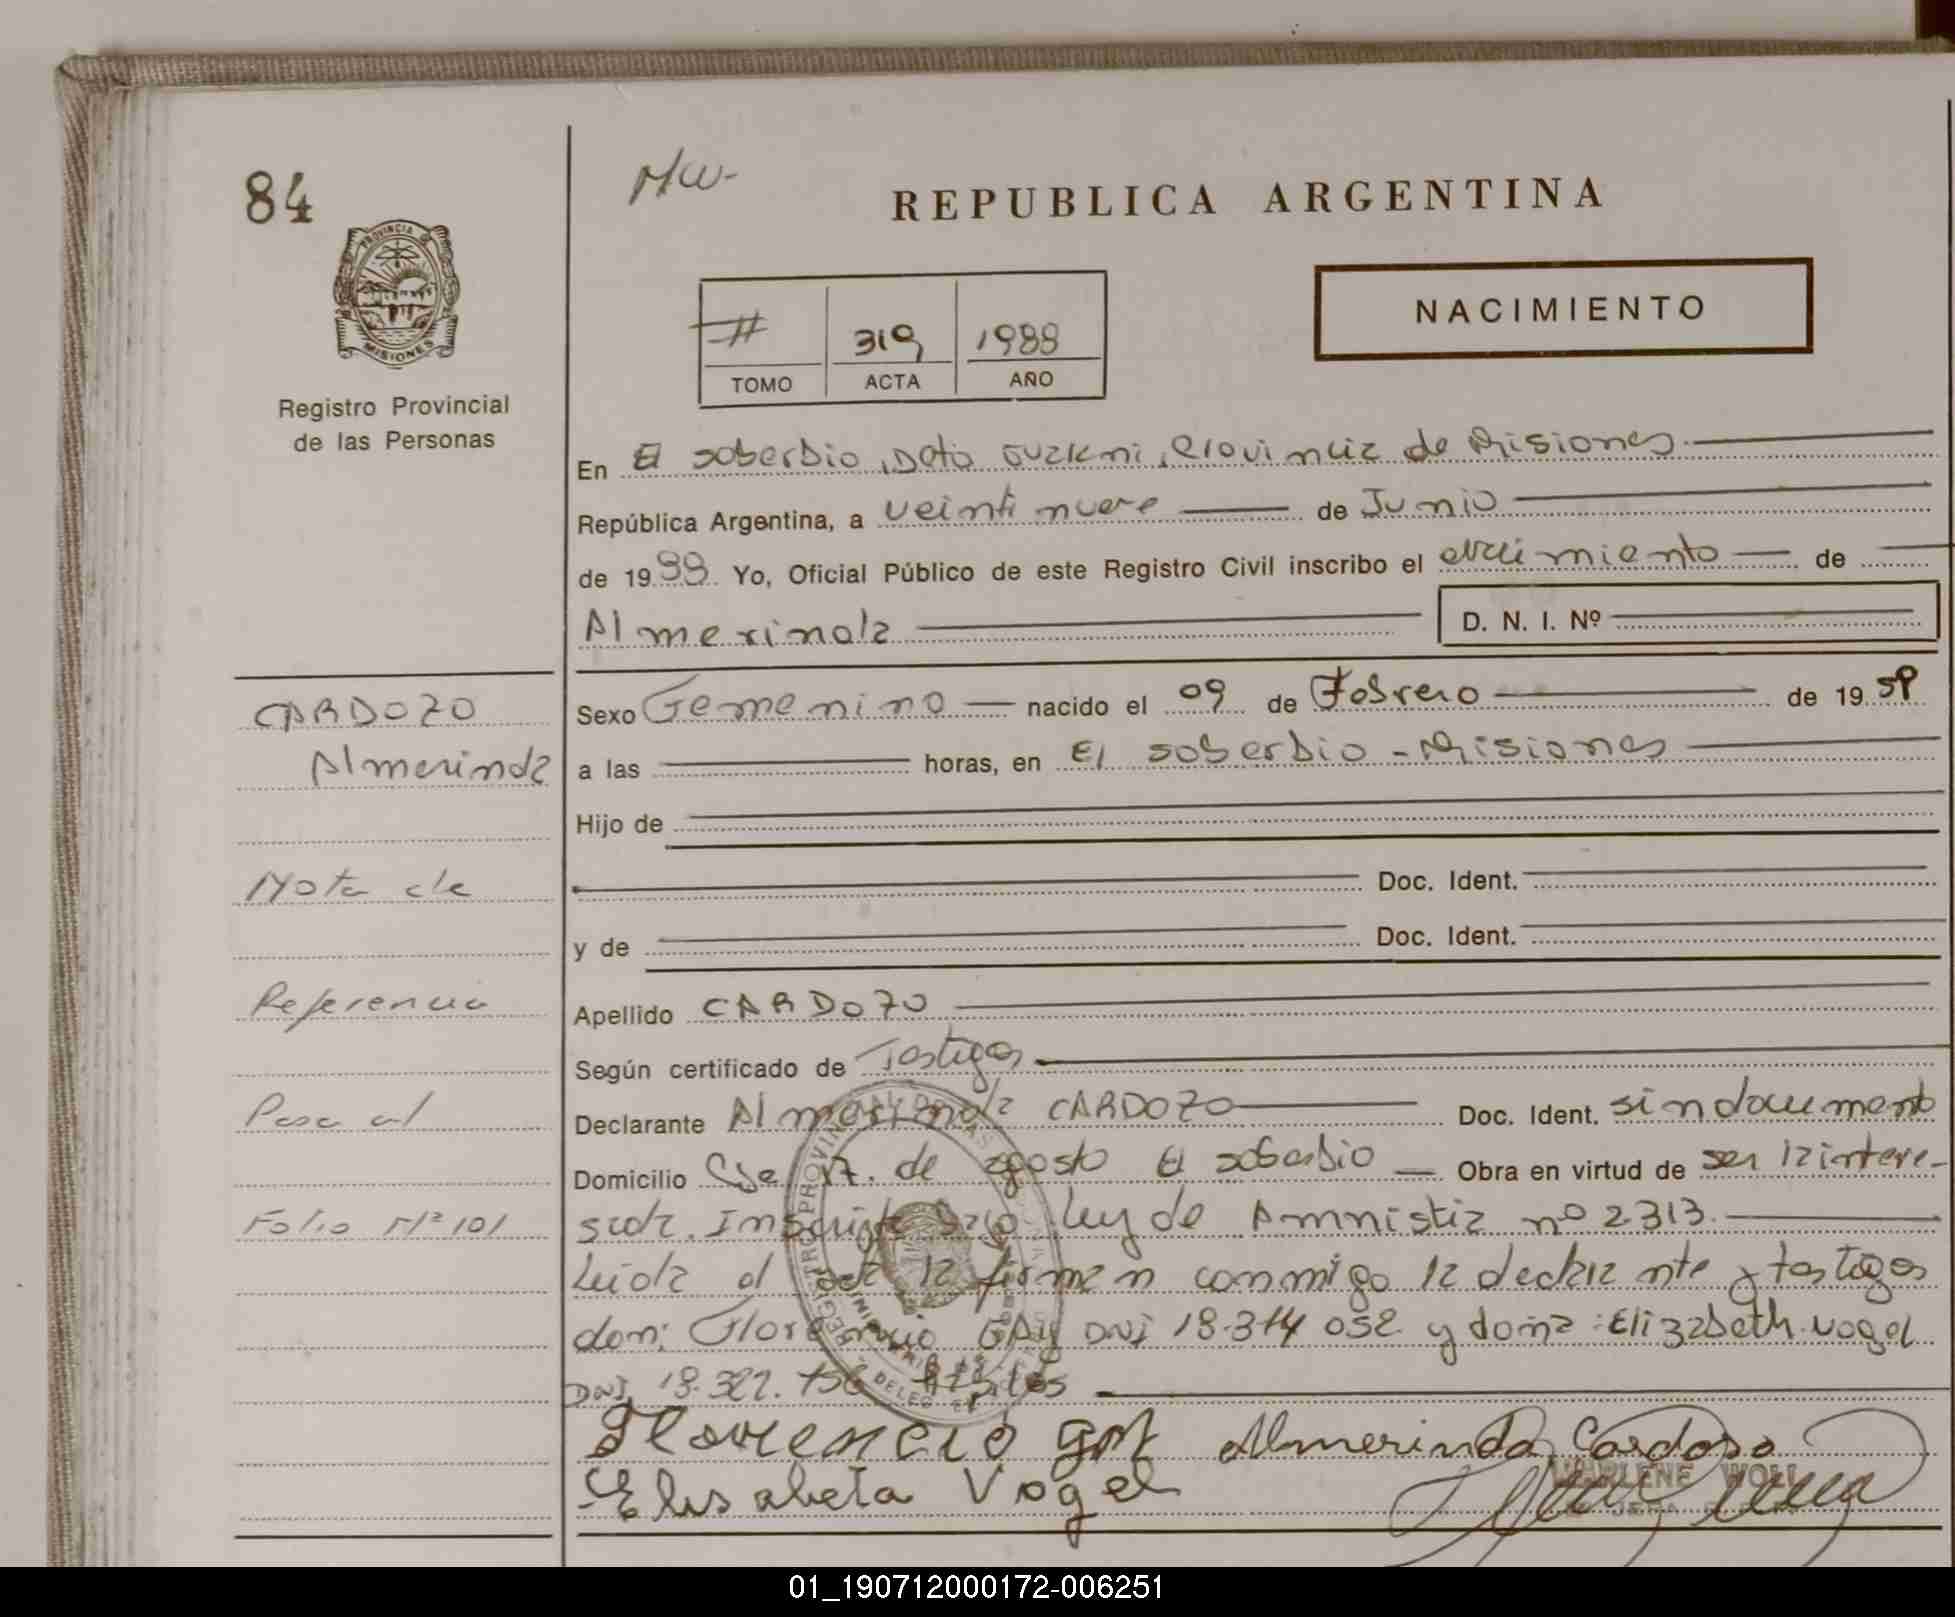 84
MW-
REPUBLICA ARGENTINA
PROVINCIA DE
MISIONES
Registro Provincial
de las Personas
# 319 1988
TOMO ACTA AÑO
NACIMIENTO
En El soberbio, Dpto Guarani, Provincia de Misiones.
República Argentina, a veinti nueve de Junio
de 1988 Yo, Oficial Público de este Registro Civil inscribo el nacimiento de
Almerinda D. N. I. Nº
CARDOZO
Almerinda
Nota de
Referencia
Pasa al
Folio Nº 101
Sexo Femenino nacido el 09 de Febrero de 19
a las horas, en El soberbio - Misiones
Hijo de
Doc. Ident.
y de Doc. Ident.
Apellido CARDOZO
Según certificado de Testigos
Declarante Almerinda CARDOZO Doc. Ident. sin documento
Domicilio Cje 17 de agosto El soberbio Obra en virtud de ser la intere-
sada. Inscripta bajo Ley de Amnistia nº 2313.
Leida el acta la firman conmigo la declarante y testigos
don: Florencio GAY DNI 18.314 052 y doña: Elizabeth Vogel
DNI 18.322.
Florencio gay Almerinda Cardoso
Elisabeta Vogel
MARLENE WOLL
01_190712000172-006251